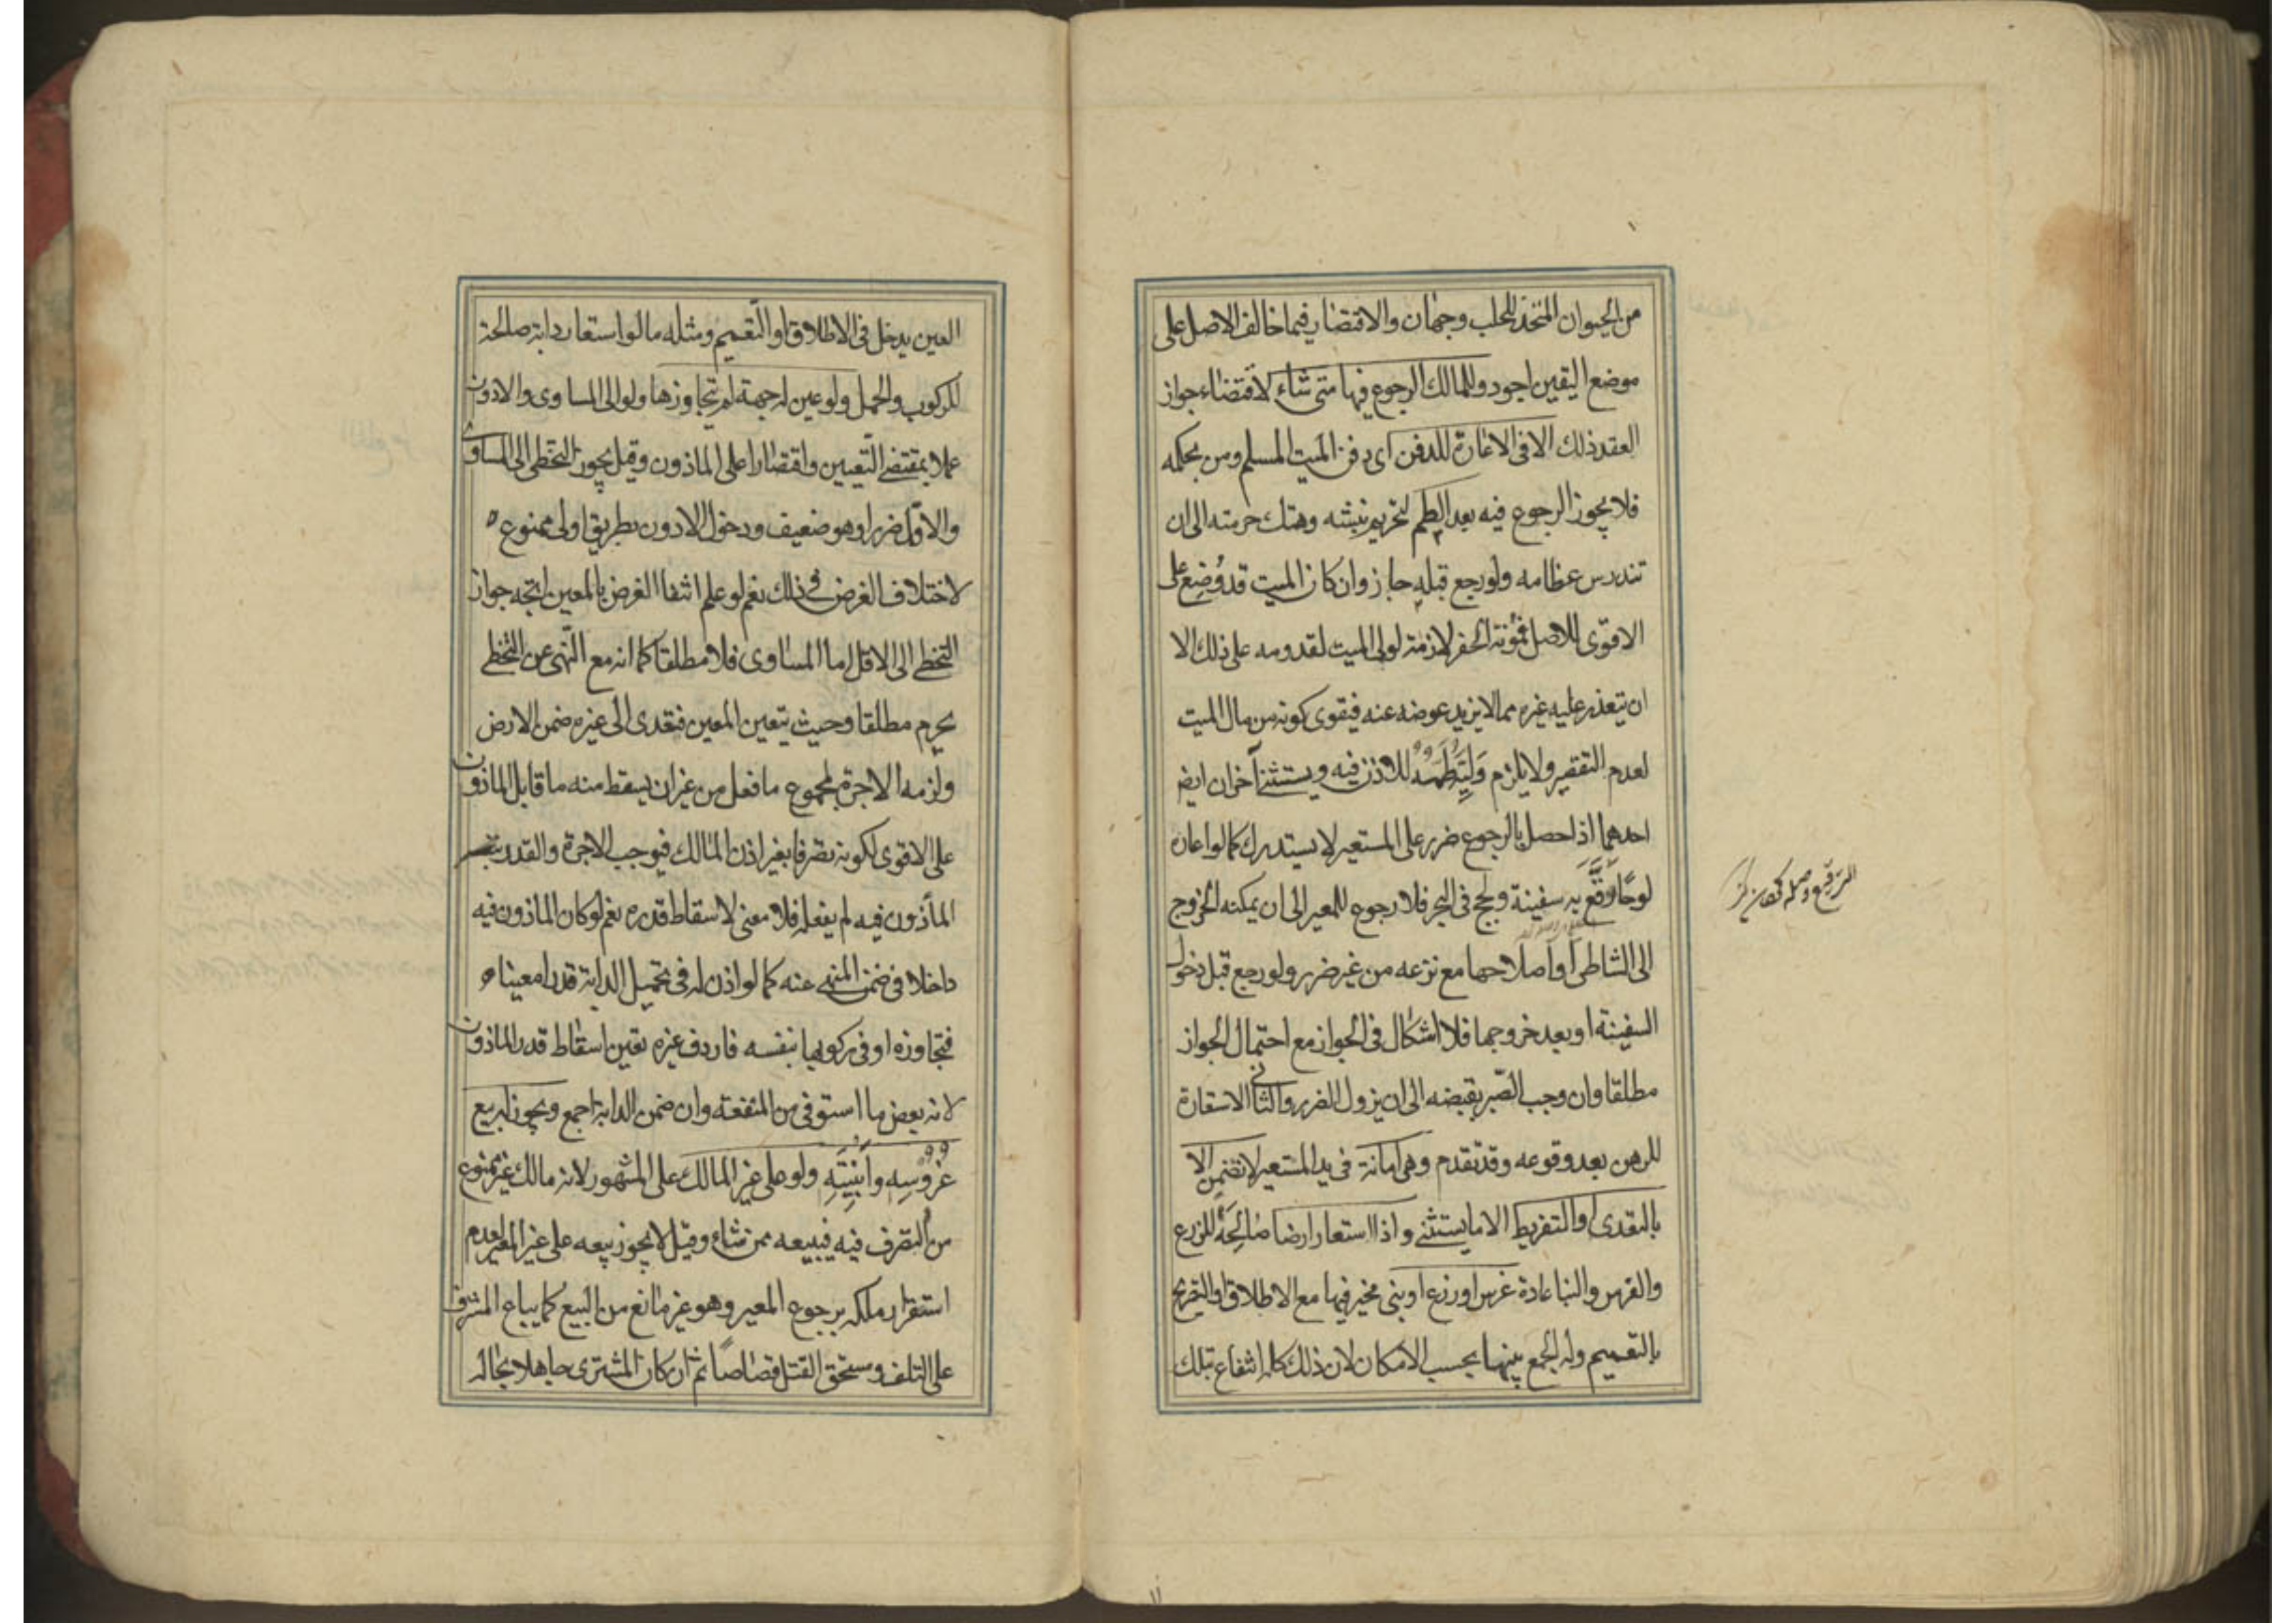 من الحيوان المتخذ للحلب وجهان والاقتصار فيما خالف الاصل على
موضع اليقين اجود وللمالك الرجوع فيها متى شاء لاقتضاء جواز
العقد ذلك الا فى الاعارة للدفن اى دفن الميت المسلم ومن بحكمه
فلا يجوز الرجوع فيه بعد الطم لتحريم نبشه وهتك حرمته الى ان
تندرس عظامه ولو رجع قبله جاز وان كان الميت قد وُضِع على
الاقوى للاصل فمؤنة الحفر لازمة لولى الميت لقدومه على ذلك الا
ان يتعذر عليه غيره مما لا يزيد عوضه عنه فيقوى كونه من مال الميت
لعدم التقصير ولا يلزم وليه طمه للاذن فيه ويستثنى آخران ايض
احدهما اذا حصل بالرجوع ضرر على المستعير لا يستدرك كما لو اعاره
لوحًا رقع به سفينة ولجج فى البحر فلا رجوع للمعير الى ان يمكنه الخروج
الى الشاطى او اصلاحها مع نزعه من غير ضرر ولو رجع قبل دخول
السفينة او بعد خروجها فلا اشكال فى الجواز مع احتمال الجواز
مطلقا وان وجب الصّبر بقبضه الى ان يزول الضرر والثانى الاستعارة
للرهن بعد وقوعه وقد تقدم وهى امانة فى يد المستعير لا تضمن الا
بالتعدى او التفريط الا ما يستثنى واذا استعار ارضا صالحة للزرع
والغرس والبنا عادة غرس او زرع او بنى مخير فيها مع الاطلاق والتصريح
بالتعميم وله الجمع بينها بحسب الامكان لان ذلك كله انتفاع بتلك
الترقيع وصله
العين يدخل فى الاطلاق او التّعميم ومثله ما لو استعار دابة صالحة
للركوب والحمل ولو عين له جهة لم يتجاوزها ولو الى المساوى والادون
عملا بمقتضى التّعيين واقتصارا على الماذون وقيل يجوز التخطى الى المساوى
والاقل ضررا وهو ضعيف ودخول الادون بطريق اولى ممنوع
لاختلاف الغرض فى ذلك نعم لو علم انتفا الغرض بالمعين اتجه جواز
التخطى الى الاقل اما المساوى فلا مطلقا كما انه مع النّهى عن التخطى
يحرم مطلقا وحيث يتعين المعين فتعدى الى غيره ضمن الارض
ولزمه الاجرة لمجموع ما فعل من غير ان يسقط منه ما قابل الماذون
على الاقوى لكونه تصرفا بغير اذن المالك فيوجب الاجرة والقدر
المأذون فيه لم يفعله فلا معنى لاسقاط قدره نعم لو كان الماذون فيه
داخلا فى ضمن المنهى عنه كما لو اذن له فى تحميل الدابة قدرا معينا
فتجاوزه او فى ركوبها بنفسه فاردف غيره تعين اسقاط قدر الماذون
لانه بعض ما استوفى من المنفعة وان ضمن الدابة اجمع ويجوز له بيع
غروسه وابنيته ولو على غير المالك على المشهور لانه مالك غير ممنوع
من التصرف فيه فيبيعه ممن شاء وقيل لا يجوز بيعه على غير المعير لعدم
استقرار ملكه برجوع المعير وهو غير مانع من البيع كما يباع المشرف
على التلف ومستحق القتل قصاصًا ثم ان كان المشترى جاهلا بحاله